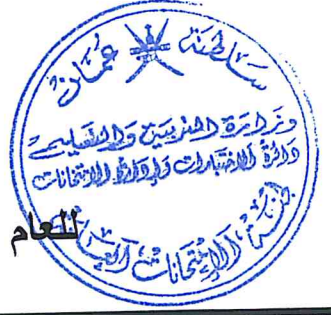 سلطنة عمان
وزارة التربية والتعليم
دائرة الاختبارات وإدارة الامتحانات
لجنة الامتحانات
للعام